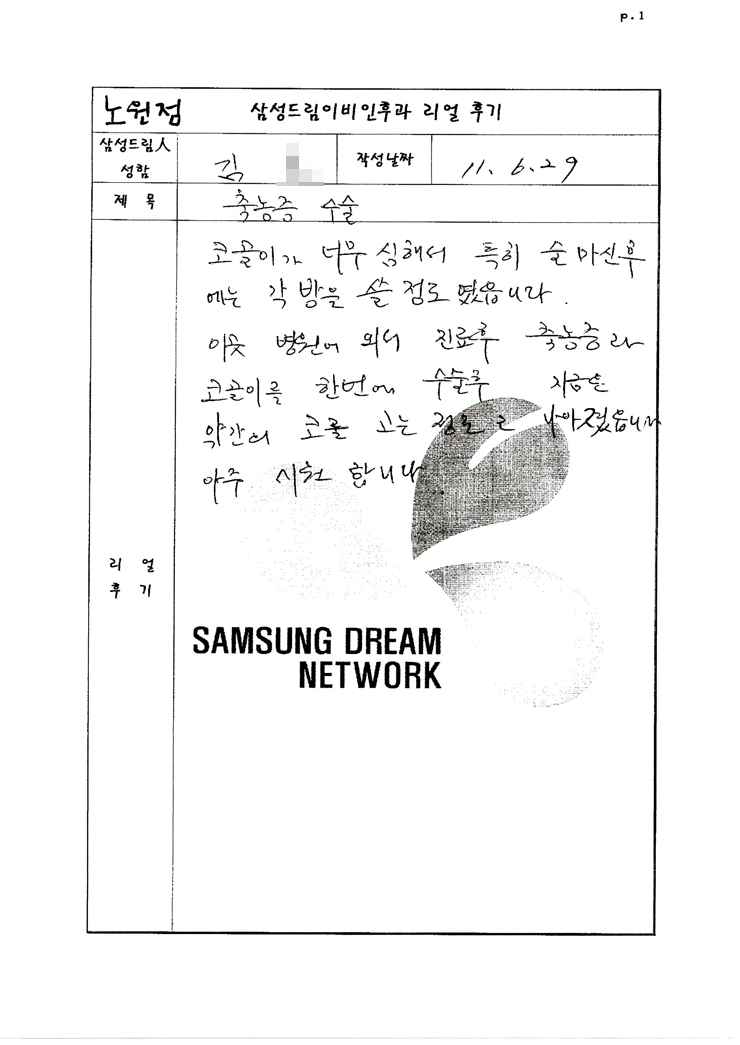 p.1
노원점 삼성드림이비인후과 리얼 후기
삼성드림人 성함 김 작성날짜 11. 6. 29
제 목 축농증 수술
코골이가 너무 심해서 특히 술 마신후
에는 각 방을 쓸 정도 였읍니다.
이곳 병원에 와서 진료후 축농증과
코골이를 한번에 수술후 지금은
약간의 코를 고는 정도로 나아졌읍니다
아주 시원 합니다.
리 얼
후 기
SAMSUNG DREAM
NETWORK